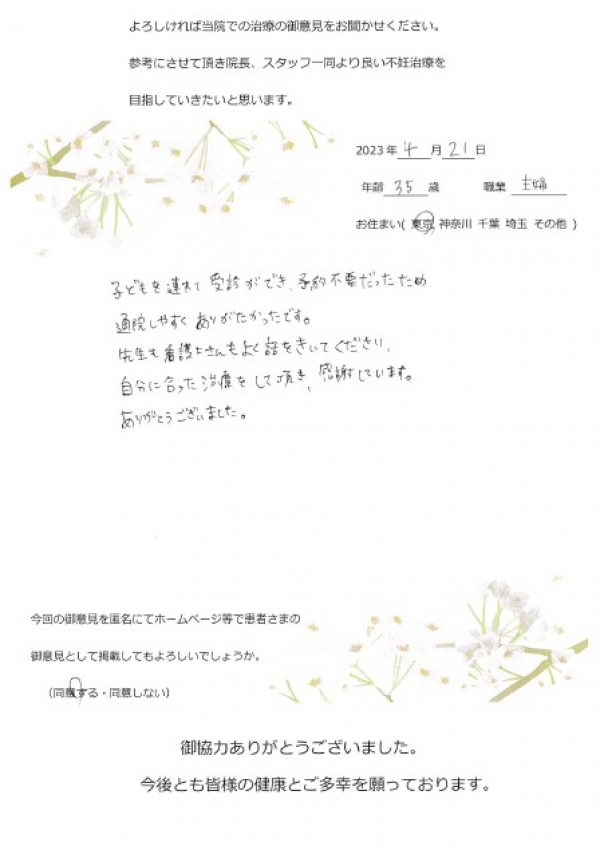 よろしければ当院での治療の御意見をお聞かせください。
参考にさせて頂き院長、スタッフ一同より良い不妊治療を
目指していきたいと思います。
2023年4月21日
年齢 35 歳 職業 主婦
お住まい( 東京 神奈川 千葉 埼玉 その他 )
子どもを連れて受診ができ、予約不要だったため
通院しやすくありがたかったです。
先生も看護士さんもよく話をきいてくださり、
自分に合った治療をして頂き、感謝しています。
ありがとうございました。
今回の御意見を匿名にてホームページ等で患者さまの
御意見として掲載してもよろしいでしょうか。
（同意する・同意しない）
御協力ありがとうございました。
今後とも皆様の健康とご多幸を願っております。